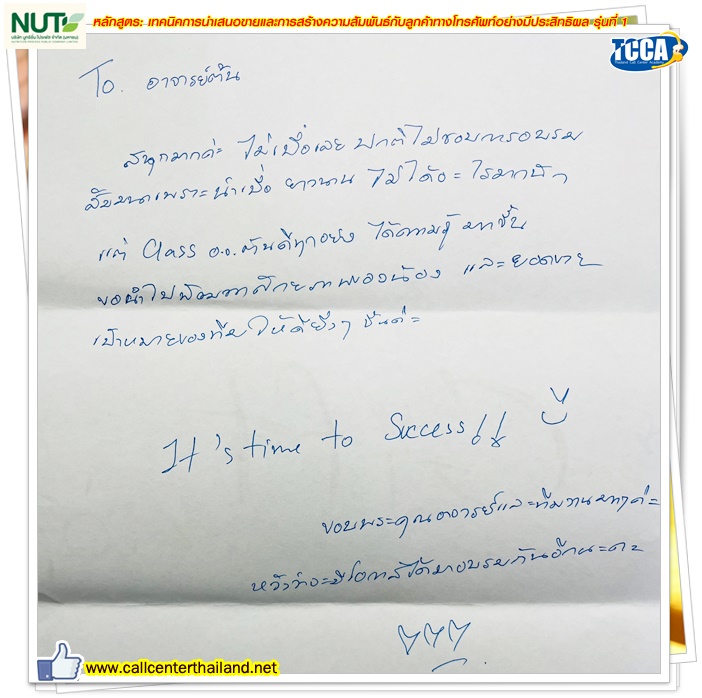 NUT
หลักสูตร: เทคนิคการนำเสนอขายและการสร้างความสัมพันธ์กับลูกค้าทางโทรศัพท์อย่างมีประสิทธิผล รุ่นที่ 1
TCCA
Thailand Call Center Academy
To. อาจารย์ต้น
สนุกมากค่ะ ไม่เบื่อเลย ปกติไม่ชอบการอบรม
สัมมนาเพราะน่าเบื่อ ยาวนาน ไม่ได้อะไรมากนัก
แต่ Class อ.อ.ต้นดีทุกอย่าง ได้ความรู้ มากขึ้น
ขอนำไปพัฒนาศักยภาพของน้อง และยอดขาย
เป้าหมายของทีมให้ดียิ่งๆ ขึ้นค่ะ
It's time to Success!!
ขอบพระคุณอาจารย์และทีมงานมากค่ะ
หวังว่าจะมีโอกาสได้มาอบรมกันอีกนะคะ
www.callcenterthailand.net